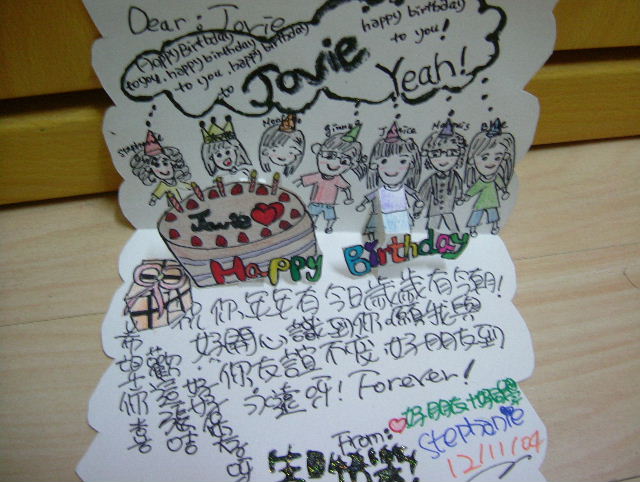 Dear : Jovie
Happy Birthday
to you, happy birthday
to you, happy birthday
to Jovie
happy birthday
to you!
Yeah!
Stephanie
Jovie
Happy Birthday
祝你年年有今日歲歲有今朝!
好開心識到你願我與
你友誼不變,好朋友到
永遠呀! Forever!
希望你喜
歡這張咭
From:
好朋友+好朋友
Stephanie
生日快樂
12/11/04